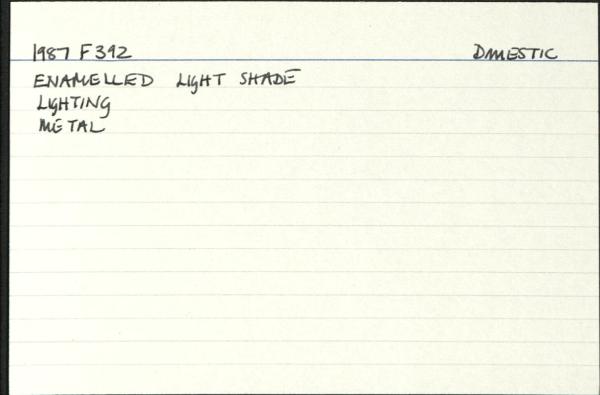 1987 F392 DOMESTIC
ENAMELLED LIGHT SHADE
LIGHTING
METAL